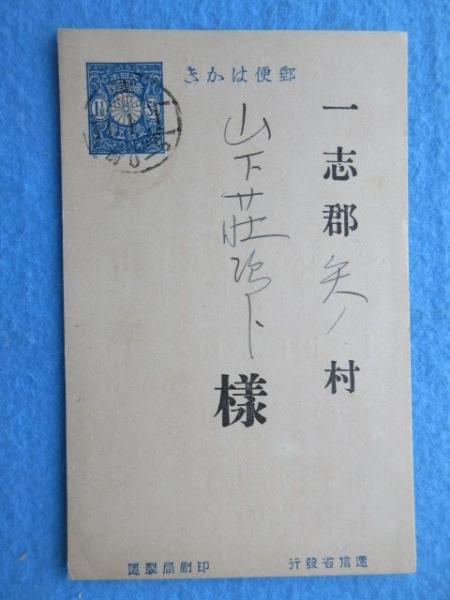 郵便はかき
一志郡矢ノ村
山下荘
様
逓信省発行
印刷局製造